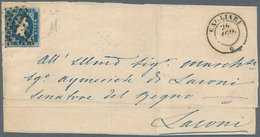 CAGLIARI
26
AGO.
All' Illmo Sigr marchese
Sgr aymerich di Laconi
senatore del Regno
Laconi